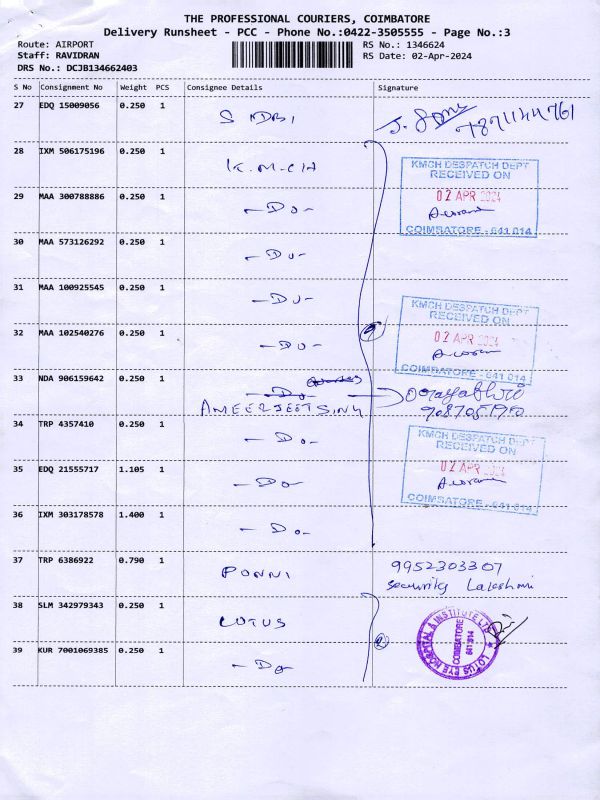 THE PROFESSIONAL COURIERS, COIMBATORE
Delivery Runsheet - PCC - Phone No.:0422-3505555 - Page No.:3
Route: AIRPORT RS No.: 1346624
Staff: RAVIDRAN RS Date: 02-Apr-2024
DRS No.: DCJB134662403
S No Consignment No Weight PCS Consignee Details Signature
27 EDQ 15009056 0.250 1 SIDBI
28 IXM 506175196 0.250 1 K.M.C.H
KMCH DESPATCH DEPT
RECEIVED ON
02 APR 2024
COIMBATORE - 641 014
29 MAA 300788886 0.250 1 -Do-
30 MAA 573126292 0.250 1 -Do-
31 MAA 100925545 0.250 1 -Do-
KMCH DESPATCH DEPT
RECEIVED ON
02 APR 2024
COIMBATORE - 641 014
32 MAA 102540276 0.250 1 -Do-
33 NDA 906159642 0.250 1 -Do-
AMEERJEETSINH
34 TRP 4357410 0.250 1 -Do-
KMCH DESPATCH DEPT
RECEIVED ON
02 APR 2024
COIMBATORE - 641 014
35 EDQ 21555717 1.105 1 -Do-
36 IXM 303178578 1.400 1 -Do-
37 TRP 6386922 0.790 1 PONNI 9952303307
Security Lakshmi
38 SLM 342979343 0.250 1 LOTUS
LOTUS EYE HOSPITAL & INSTITUTE LTD
COIMBATORE
641 014
39 KUR 7001069385 0.250 1 -Do-